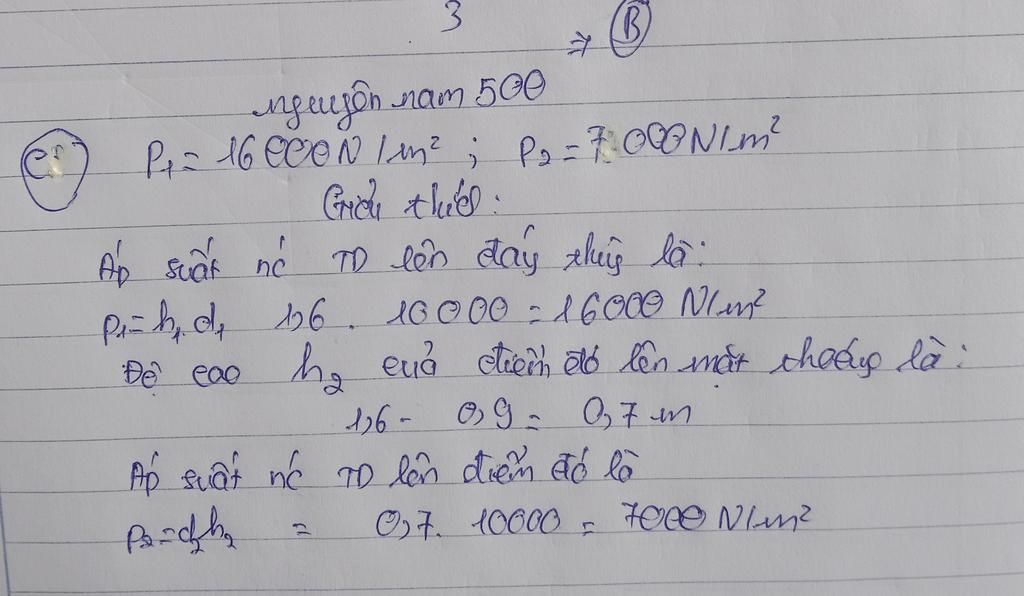 3
⇒ B
nguyên nam 500
C, P₁ = 16000 N/m² ; P₂ = 7.000 N/m²
Giải thích:
Áp suất nć TD lên đáy thùng là:
P₁ = h₁.d₁ 1,6 . 10000 = 16000 N/m²
Độ cao h₂ của điểm đó lên mặt thoáng là:
1,6 - 0,9 = 0,7 m
Áp suất nć TD lên điểm đó là
P₂ = d₂h₂ = 0,7. 10000 = 7000 N/m²